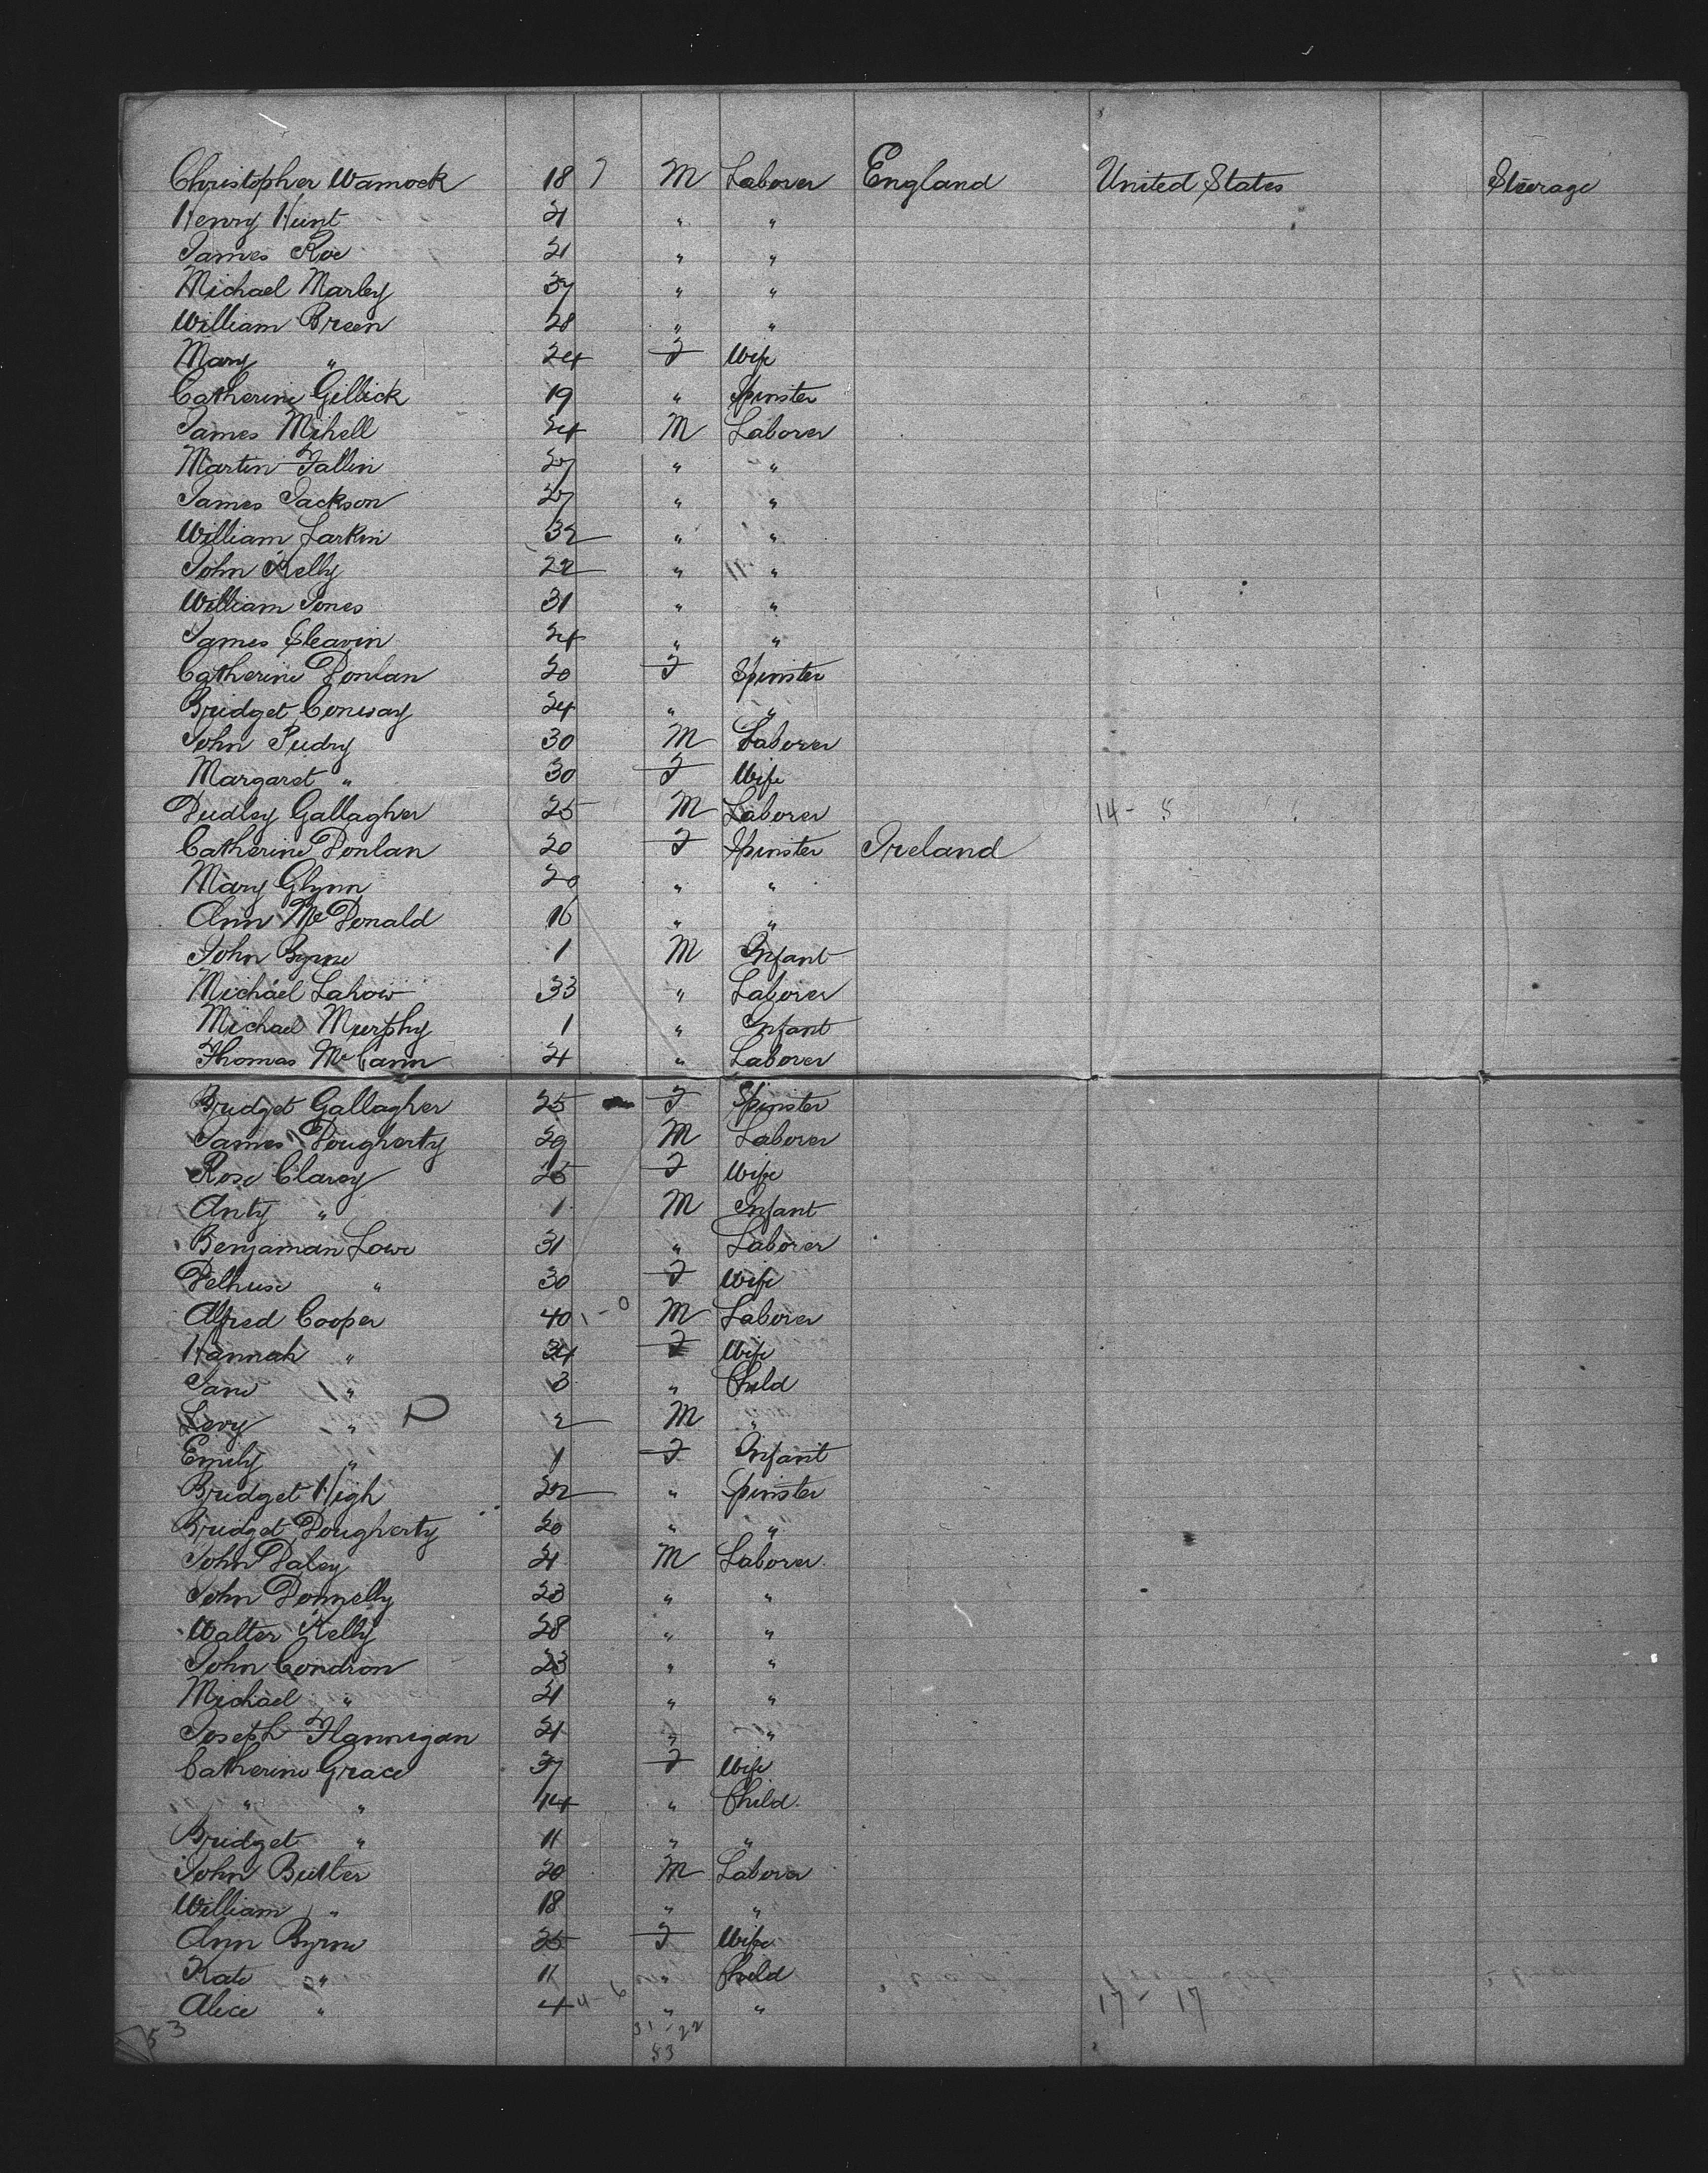 Christopher Warnock 18 M Laborer England United States Steerage
Henry Hunt 21 " "
James Roe 21 " "
Michael Marley 37 " "
William Breen 28 " "
Mary " 24 F Wife
Catherine Gillick 19 " Spinster
James Mihell 24 M Laborer
Martin Fallin 27 " "
James Jackson 27 " "
William Larkin 32 " "
John Kelly 22 " "
William Jones 31 " "
James Sleavin 24 " "
Catherine Donlan 20 F Spinster
Bridget Conway 24 " "
John Pudry 30 M Laborer
Margaret " 30 F Wife
Dudley Gallagher 25 M Laborer 14 - 5
Catherine Donlan 20 F Spinster Ireland
Mary Glynn 20 " "
Ann McDonald 16 " "
John Byrne 1 M Infant
Michael Lahow 33 " Laborer
Michael Murphy 1 " Infant
Thomas McCann 21 " Laborer
Bridget Gallagher 25 F Spinster
James Dougherty 29 M Laborer
Rose Clarey 25 F Wife
Anty " 1 M Infant
Benjaman Lowe 31 " Laborer
" 30 F Wife
Alfred Cooper 40 1 - 0 M Laborer
Hannah " 34 F Wife
Jane " 3 " Child
Levy " 2 M "
Emily " 1 F Infant
Bridget High 22 " Spinster
Bridget Dougherty 20 " "
John Daley 21 M Laborer
John Donnelly 23 " "
Walter Kelly 28 " "
John Condron 23 " "
Michael " 21 " "
Joseph Flannigan 21 " "
Catherine Grace 37 F Wife
" " 14 " Child
Bridget " 11 " "
John Butler 20 M Laborer
William " 18 " "
Ann Byrne 35 F Wife
Kate " 11 " Child
Alice " 4 4 - 6 " " 17 - 17
53 31 - 22
53